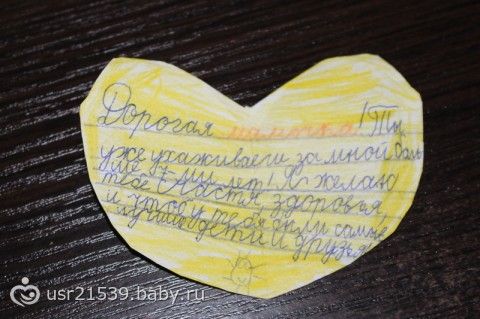 Дорогая мамочка! Ты
уже ухаживаеш за мной боль
ше лет! Я желаю
тебе счастя, здоровья,
и чтобы у тебя были самые
лучшие дети и друзья
usr21539.baby.ru